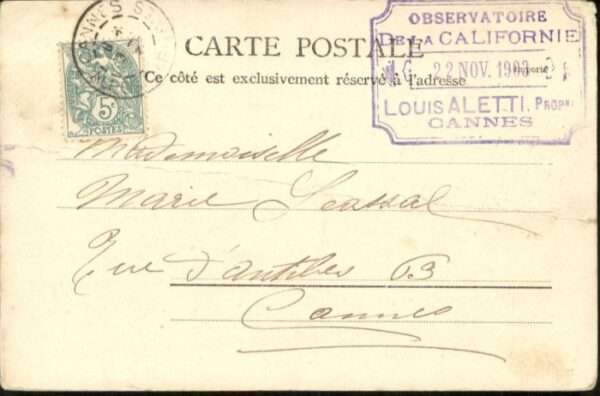 CANNES
5c
POSTES
CARTE POSTALE
Ce côté est exclusivement réservé à l'adresse
OBSERVATOIRE
DE LA CALIFORNIE
22 NOV. 190
LOUIS ALETTI. PROPRE
CANNES
Mademoiselle
Marie
Rue d'antibes 63
Cannes